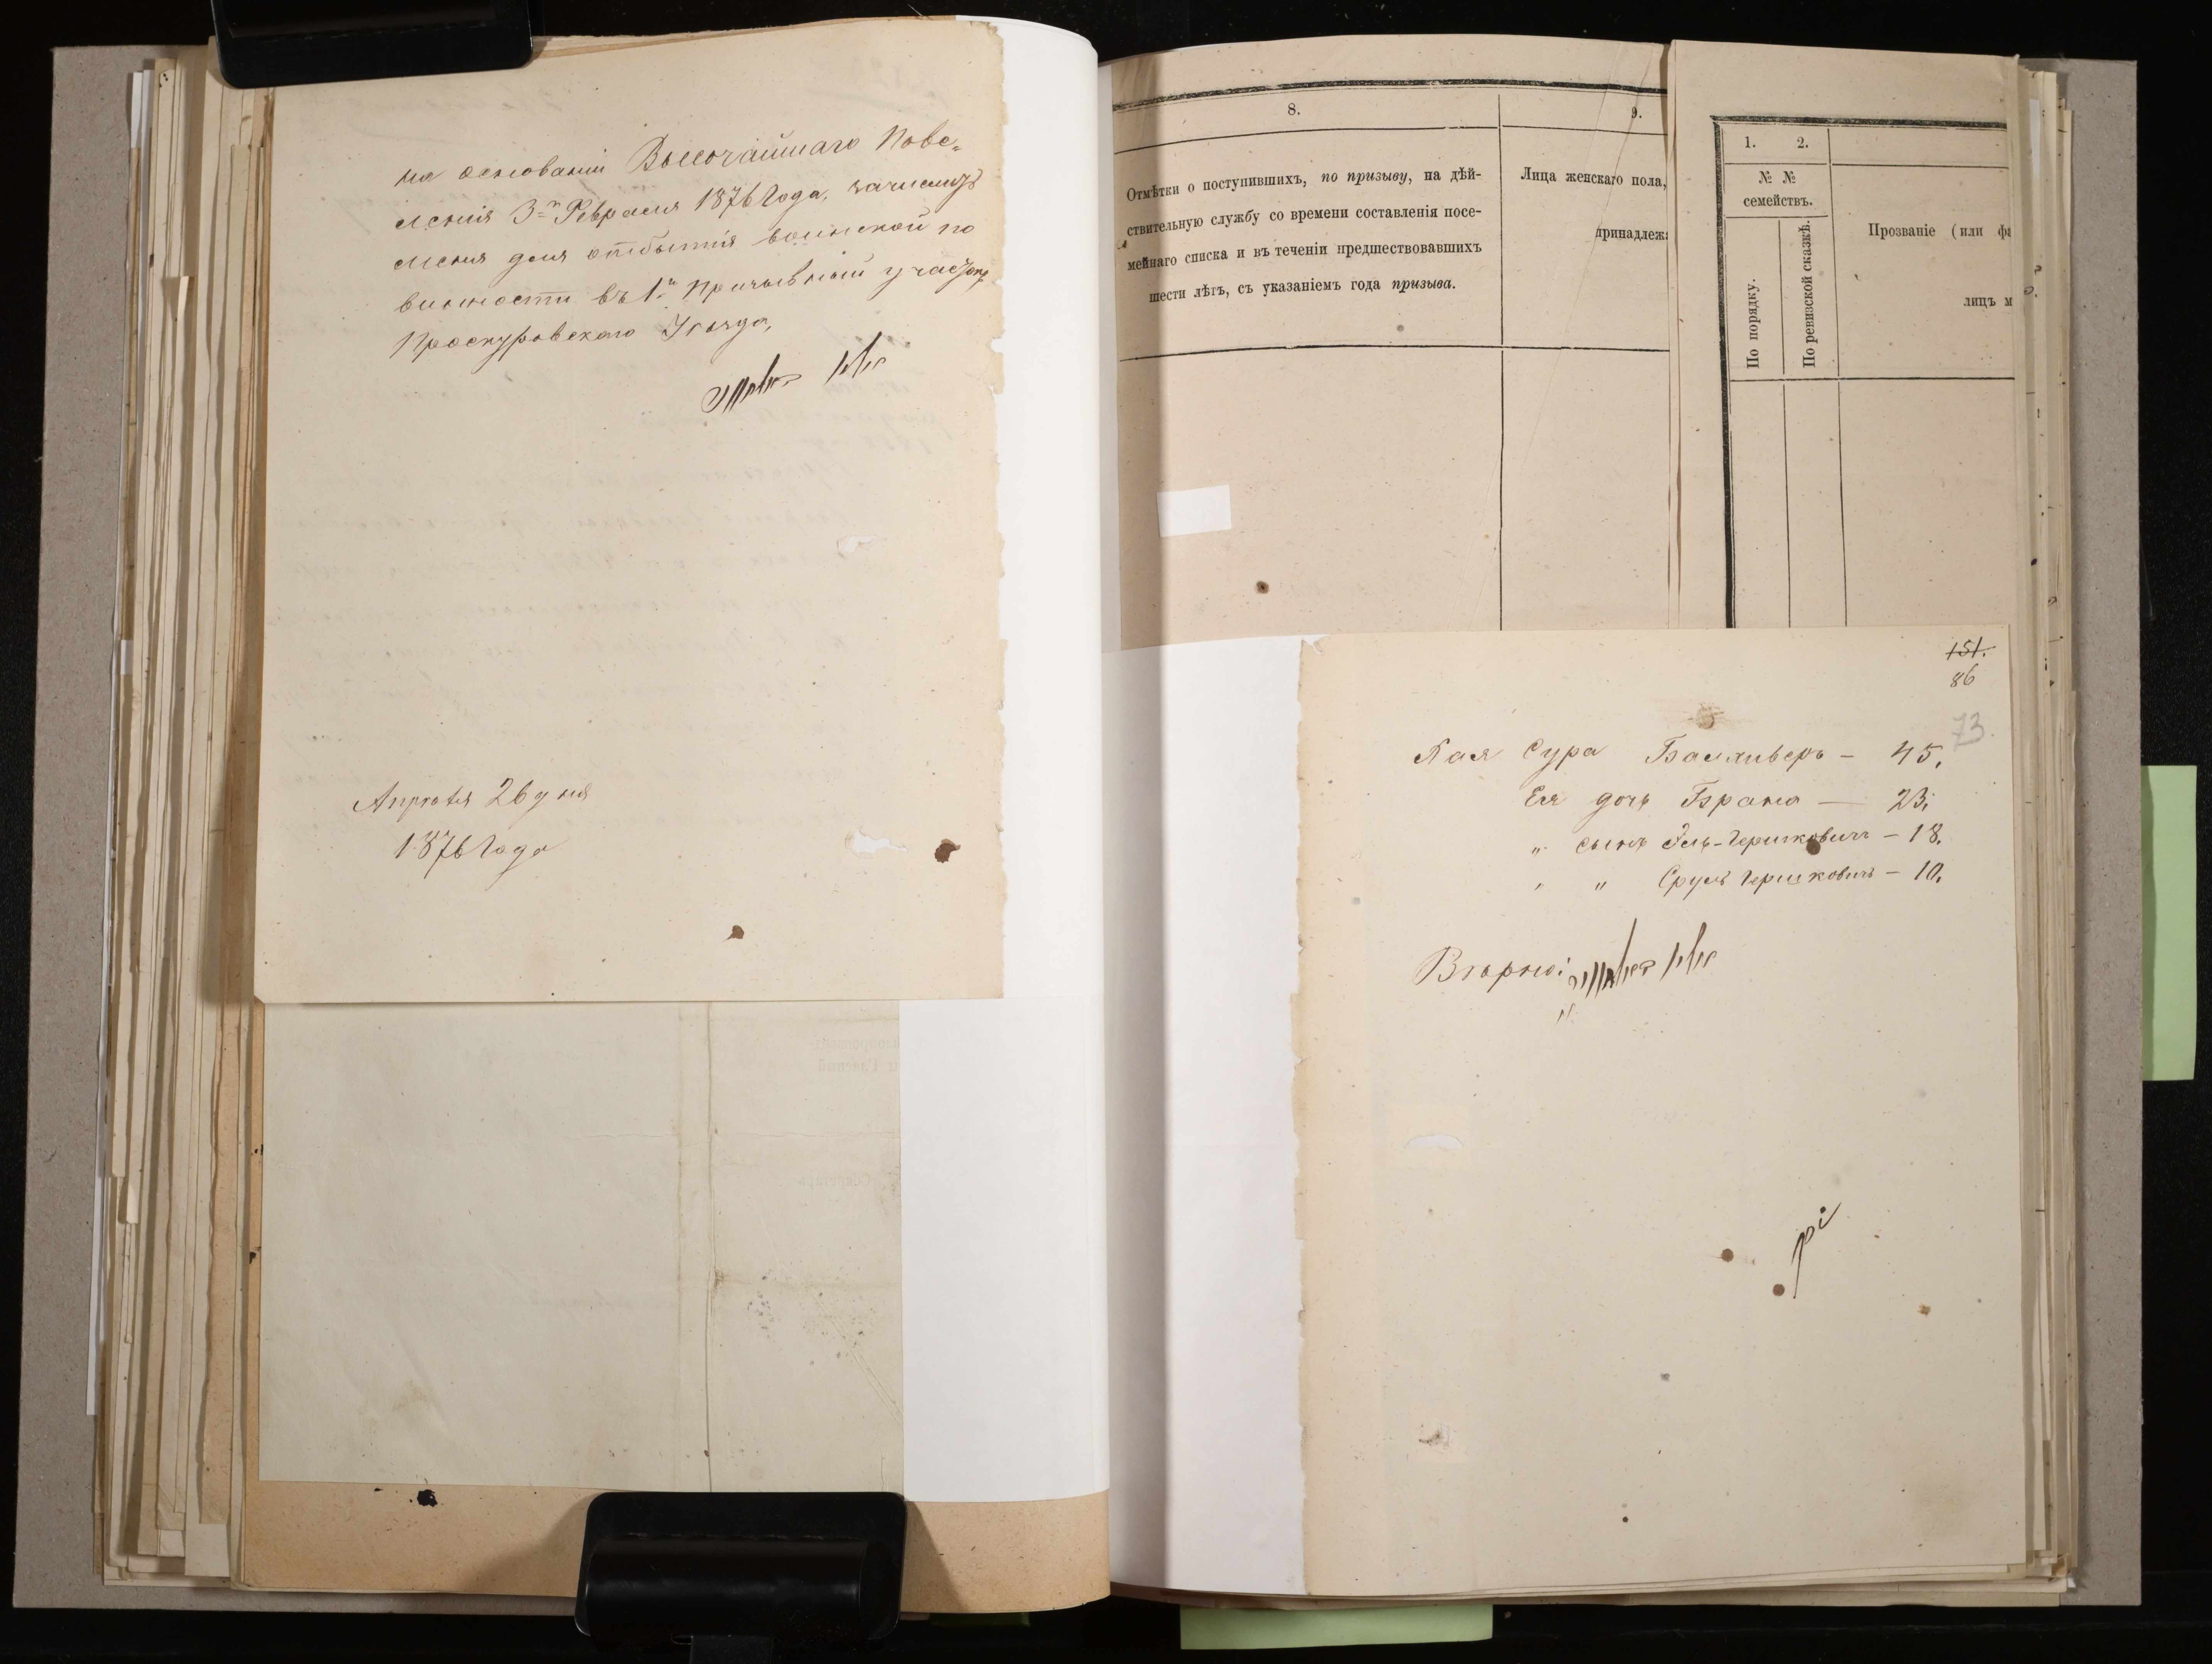 на основаніи Высочайшаго Пове-
ленія 3го Февраля 1876 Года, зачислить
меня для отбытія воинской по
винности въ 1й Призывный участокъ
Проскуровскаго Уѣзда,
Апрѣля 26 дня
1876 Года
8.
9.
Отмѣтки о поступившихъ, по призыву, на дѣй-
ствительную службу со времени составленія посе-
мейнаго списка и въ теченіи предшествовавшихъ
шести лѣтъ, съ указаніемъ года призыва.
Лица женскаго пола,
принадлеж
1.
2.
№ №
семействъ.
По порядку.
По ревизской сказкѣ.
Прозваніе (или фа
лицъ м
151.
86
73.
Сура – 45.
Ея дочь Брана — 23.
" сынъ Эль-Гершковичъ – 18.
" " Сруль Гершковичъ – 10.
Вѣрно: